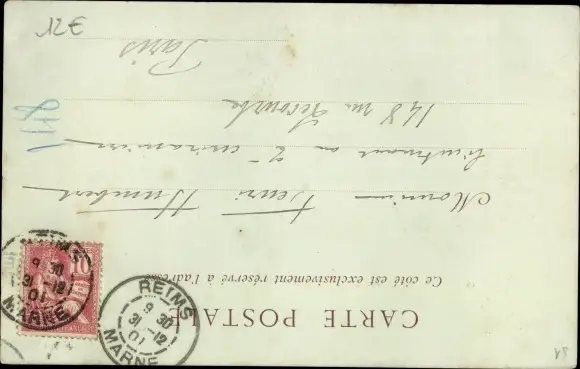 CARTE POSTALE
Ce côté est exclusivement réservé à l'adresse
Monsieur Henri Humbert
Lieutenant au 2e cuirassiers
148 Lecourbe
Paris
118
REIMS
9 30
31 - 12
01
MARNE
9 30
31 - 12
01
MARNE
10